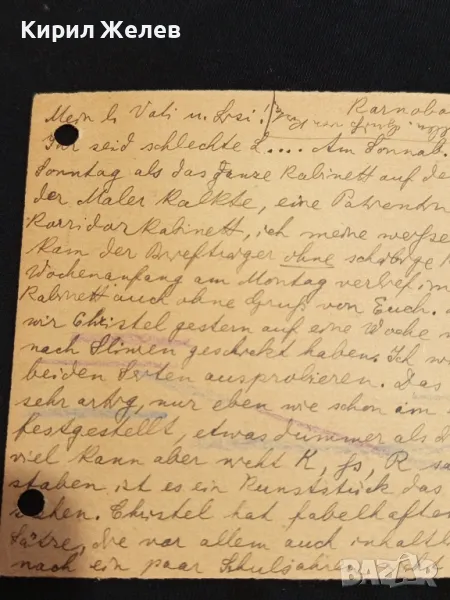 Кирил Желев
Mein l. Vati u. Susi! Karnoba
Ihr seid schlechte L.... Am Sonnab.
Sonntag als das ganze Kabinett auf de
der Maler kalkte, eine Patientin
Korridor Kabinett, ich meine
kam der Briefträger ohne
Wochenanfang am Montag verlief im
Kabinett auch ohne Gruß von Euch.
wir Christel gestern auf eine Woche
nach Sliwen geschickt haben. Ich
beiden Seiten ausprobieren. Das
sehr artig, nur eben wie schon im
festgestellt, etwas dummer als
viel kann aber nicht K, js, R sa
staben ist es ein Kunststück das
Christel hat fabelhafte
Sätze, die vor allem auch inhaltl
nach ein paar Schuljahren
BAZAR